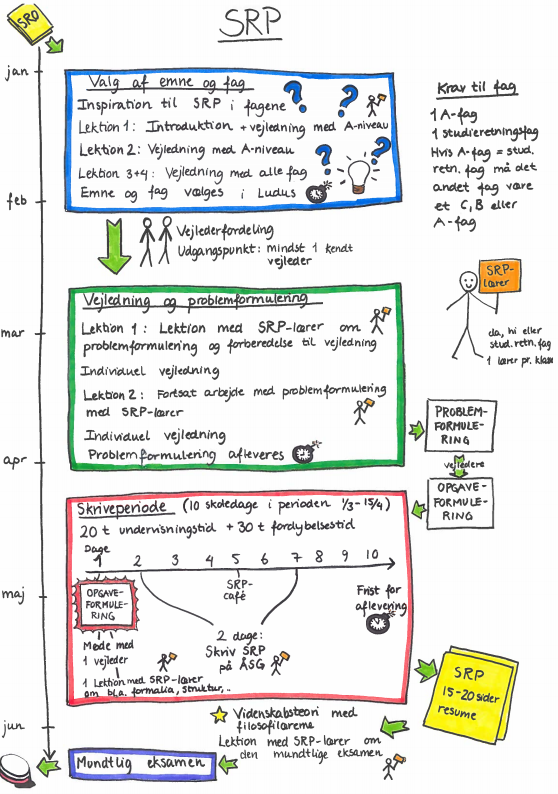 SRO
SRP
jan
feb
mar
apr
maj
jun
Valg af emne og fag
Inspiration til SRP i fagene
Lektion 1: Introduktion + vejledning med A-niveau
Lektion 2: Vejledning med A-niveau
Lektion 3+4: Vejledning med alle fag
Emne og fag vælges i Ludus
Krav til fag
1 A-fag
1 studieretningsfag
Hvis A-fag = stud.
retn. fag må det
andet fag være
et C, B eller
A-fag
Vejlederfordeling
Udgangspunkt: mindst 1 kendt
vejleder
SRP-
lærer
da, hi eller
stud.retn.fag
1 lærer pr. klasse
Vejledning og problemformulering
Lektion 1: Lektion med SRP-lærer om
problemformulering og forberedelse til vejledning
Individuel vejledning
Lektion 2: Fortsat arbejde med problemformulering
med SRP-lærer
Individuel vejledning
Problemformulering afleveres
PROBLEM-
FORMULE-
RING
vejledere
OPGAVE-
FORMULE-
RING
Skriveperiode (10 skoledage i perioden 1/3-15/4)
20 t undervisningstid + 30 t fordybelsestid
Dage
1 2 3 4 5 6 7 8 9 10
OPGAVE-
FORMULE-
RING
SRP-
café
Frist for
aflevering
Møde med
1 vejleder
1 Lektion med SRP-lærer
om bl.a. formalia, struktur,..
2 dage:
Skriv SRP
på ÅSG
SRP
15-20 sider
resume
Videnskabsteori med
filosofilærerne
Lektion med SRP-lærer om
den mundtlige eksamen
Mundtlig eksamen